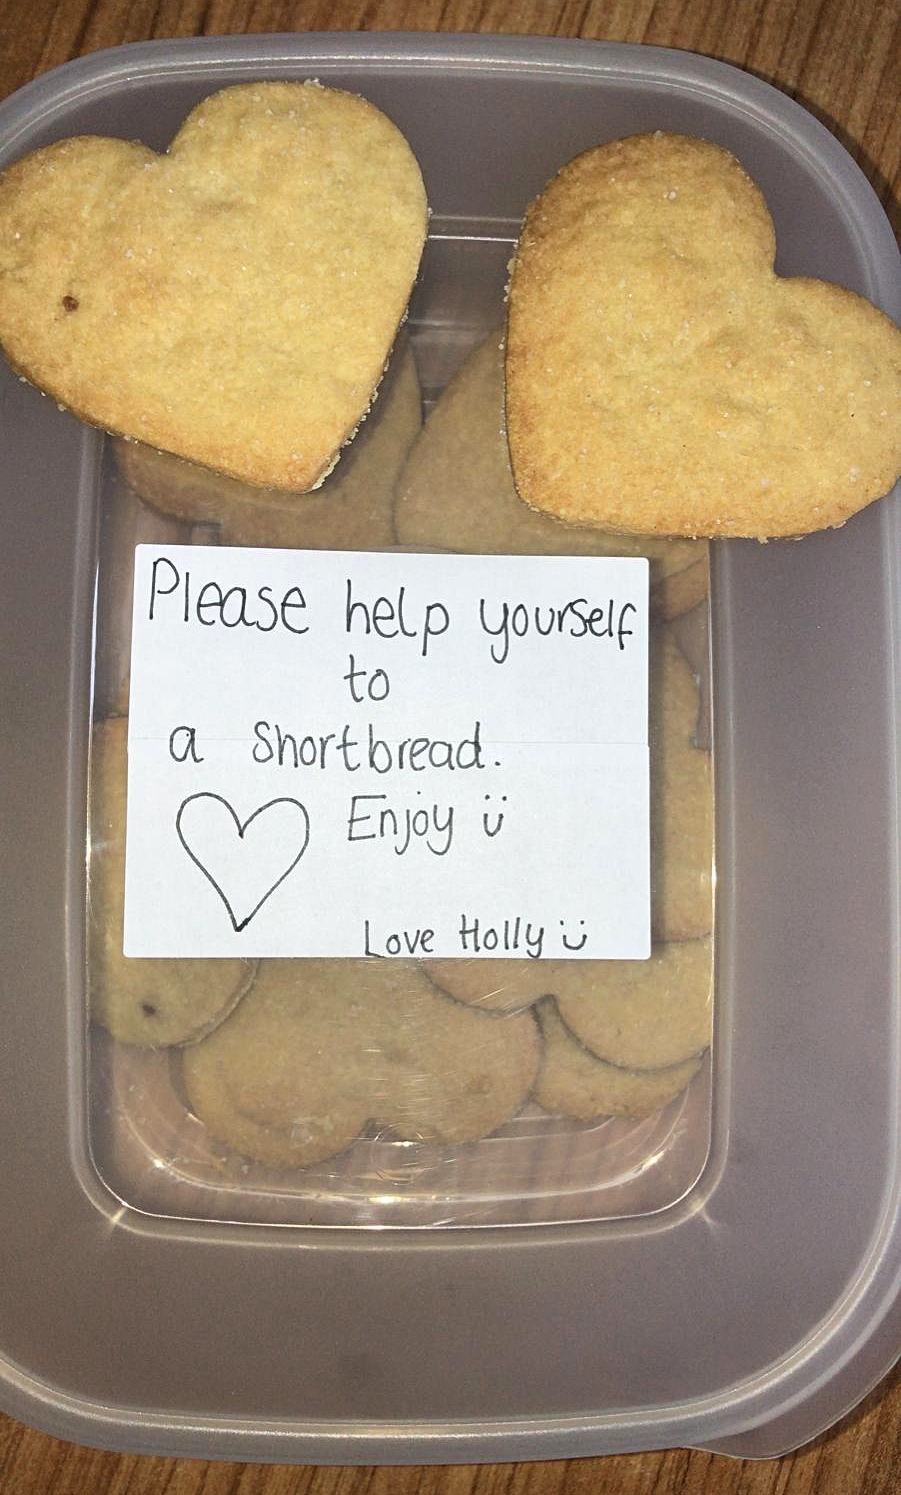 Please help yourself
to
a Shortbread.
Enjoy ü
Love Holly ü